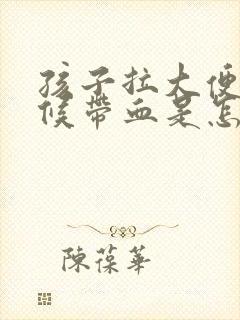 孩子拉大便
候帶血是怎
陳葆華